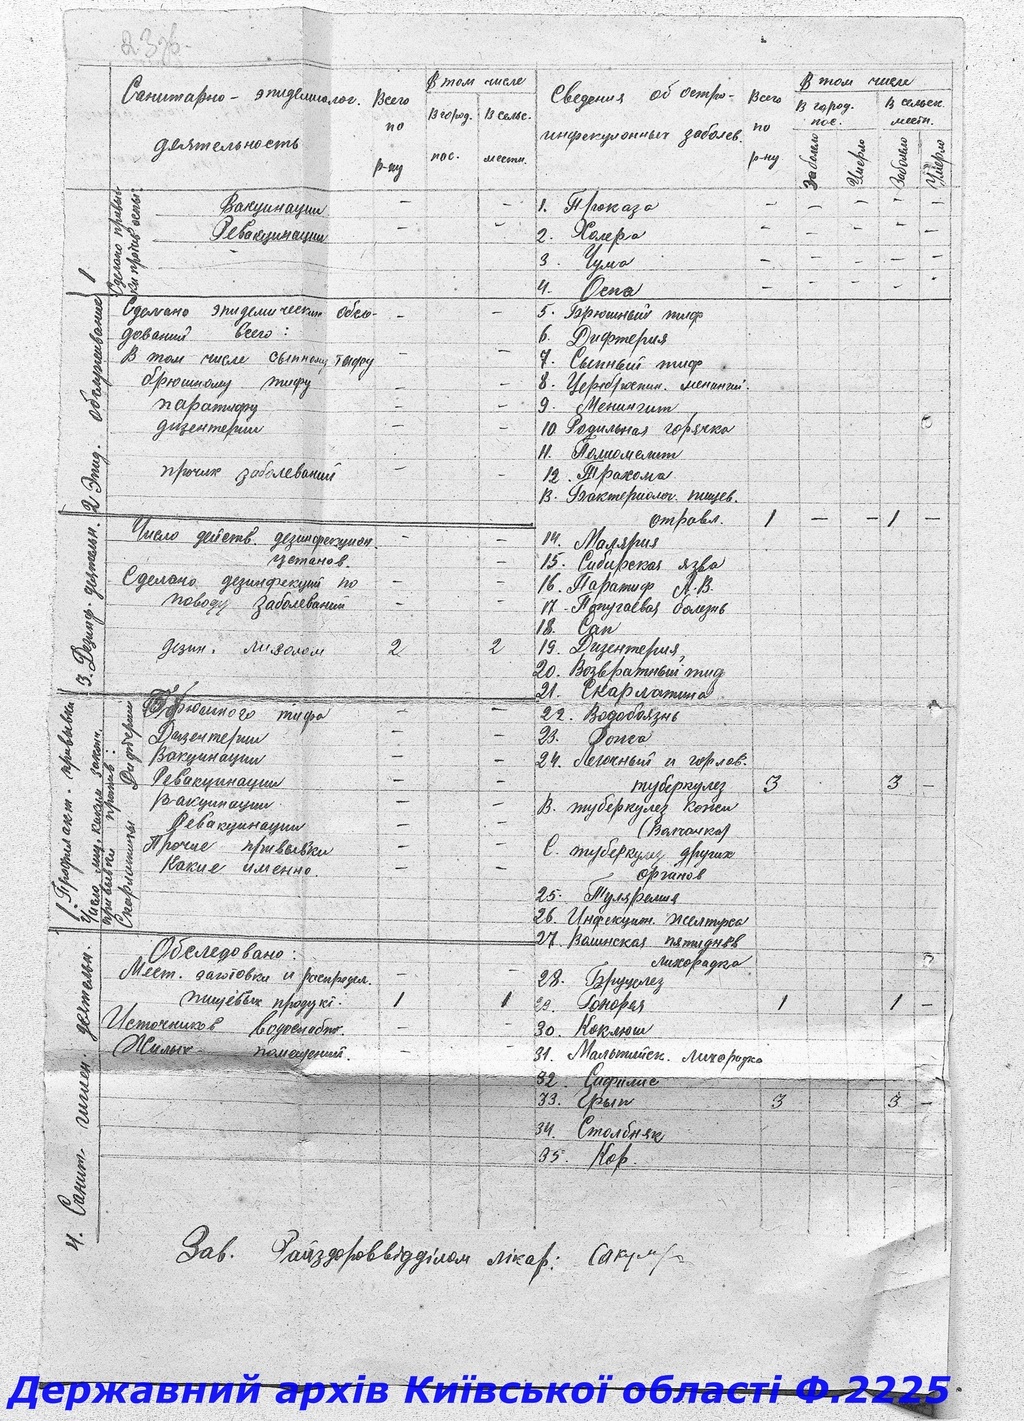 Санитарно-эпидемиолог.
деятельность
Всего
по
р-ну
В том числе
В город.
пос.
В сельс.
местн.
Сделано привив-
ки против оспы:
Вакцинации – – –
Ревакцинации – – –
2 Эпид. обслуживание
Сделано эпидемических обсле-
дований всего: – – –
В том числе сыпному тифу – – –
брюшному тифу – – –
паратифу – – –
дизентерии – – –
прочих заболеваний – – –
3. Дезинф. деятельн.
Число действ. дезинфекцион.
установ. – – –
Сделано дезинфекций по
поводу заболеваний – – –
дезин. лизолом 2 2
Профилакт. прививки
Число лиц, каким закон.
прививки против:
Скарлатины Дифтерии
Брюшного тифа – – –
Дизентерии – – –
Вакцинации – – –
Ревакцинации – – –
Вакцинации – – –
Ревакцинации – – –
Прочие прививки – – –
Какие именно. – – –
4. Санит. гигиен. деятельн.
Обследовано:
Мест. заготовки и распредел.
пищевых продукт. 1 1
Источников водоснабж. – –
Жилых помещений. – –
Сведения об остро-
инфекционных заболев.
Всего
по
р-ну
В том числе
В город.
пос.
В сельск.
местн.
Заболело
Умерло
Заболело
Умерло
1. Проказа – – – – –
2. Холера – – – – –
3. Чума – – – – –
4. Оспа – – – – –
5. Брюшный тиф
6. Дифтерия
7. Сыпный тиф
8. Церебрспин. менингит.
9. Менингит
10 Родильная горячка
11. Полиомелит
12. Трахома
В. Бактериолог. пищев.
отравл. 1 – – 1 –
14. Малярия
15. Сибирская язва
16. Паратиф А.В.
17. Попугаевая болезнь
18. Сап
19. Дизентерия
20. Возвратный тиф
21. Скарлатина
22. Водобоязнь
23. Рожа
24. Легочный и горлов.
туберкулез 3 3 –
В. туберкулез кожи
(Волчанка)
С. туберкулез других
органов
25. Туляремия
26. Инфекцит. желтуха
27. Волинская пятиднев
лихорадка
28. Бруцулез
29. Гонорея 1 1 –
30. Коклюш
31. Мальтийск. лихородка
32. Сифилис
33. Грып 3 3 –
34. Столбняк
35. Кор.
Зав. Райздороввідділом лікар:
Державний архів Київської області Ф.2225